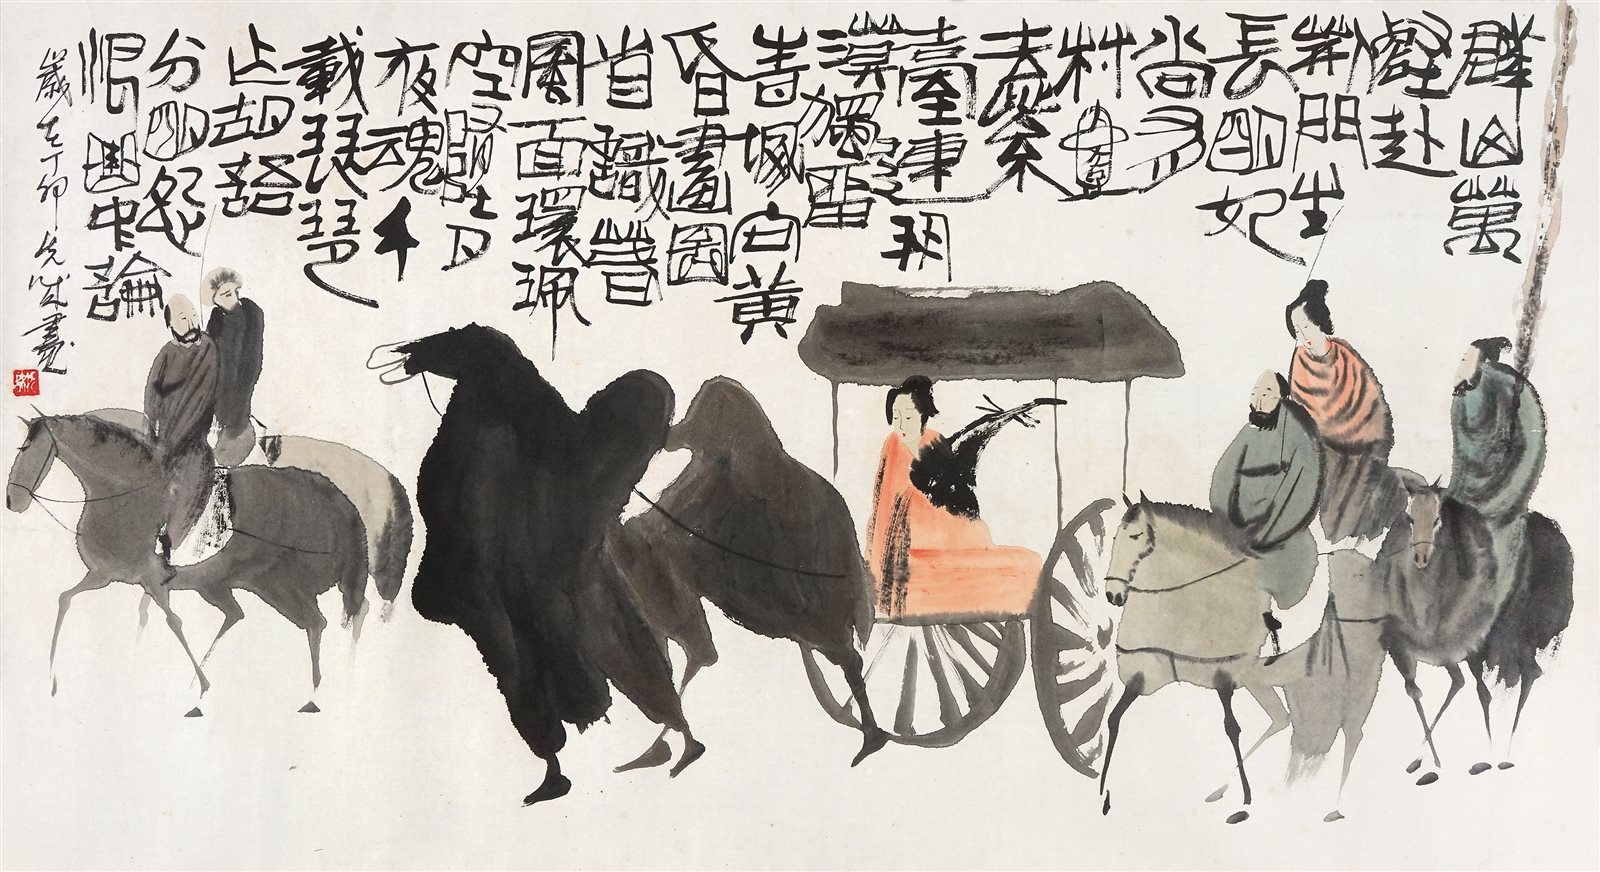 群山萬
壑赴
荊門生
長明妃
尚有
村壹
去紫
臺連朔
漠獨留
青塚向黃
昏畫圖
省識春
風面環珮
空歸月
夜魂千
載琵琶
作胡語
分明怨
恨曲中論
歲在丁卯 畫